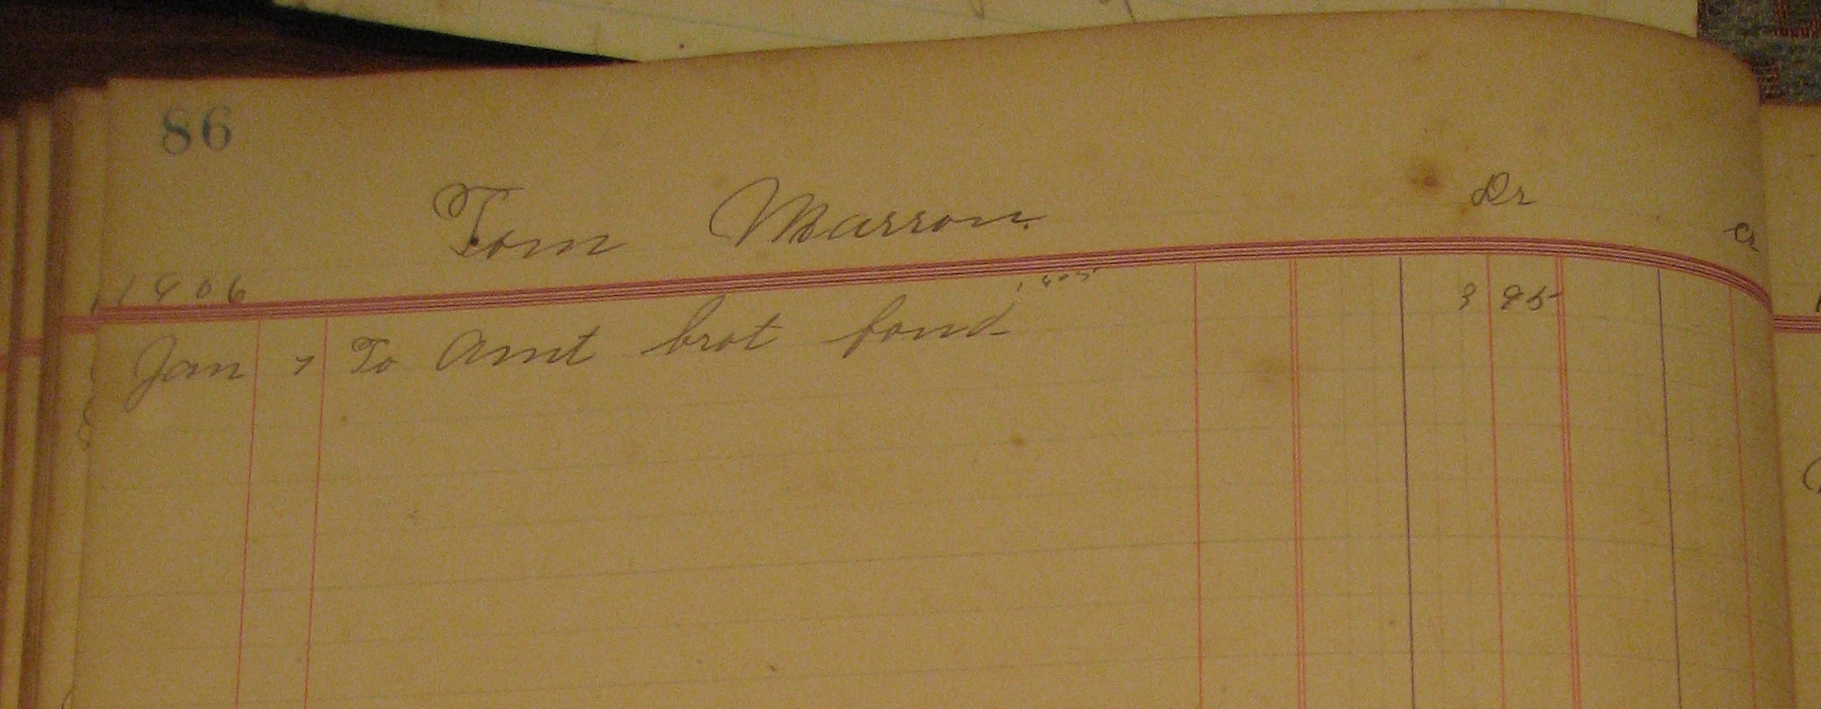 86
Tom Marron Dr Cr
1906
Jan 7 To Amt brot forwd 1905 3 95